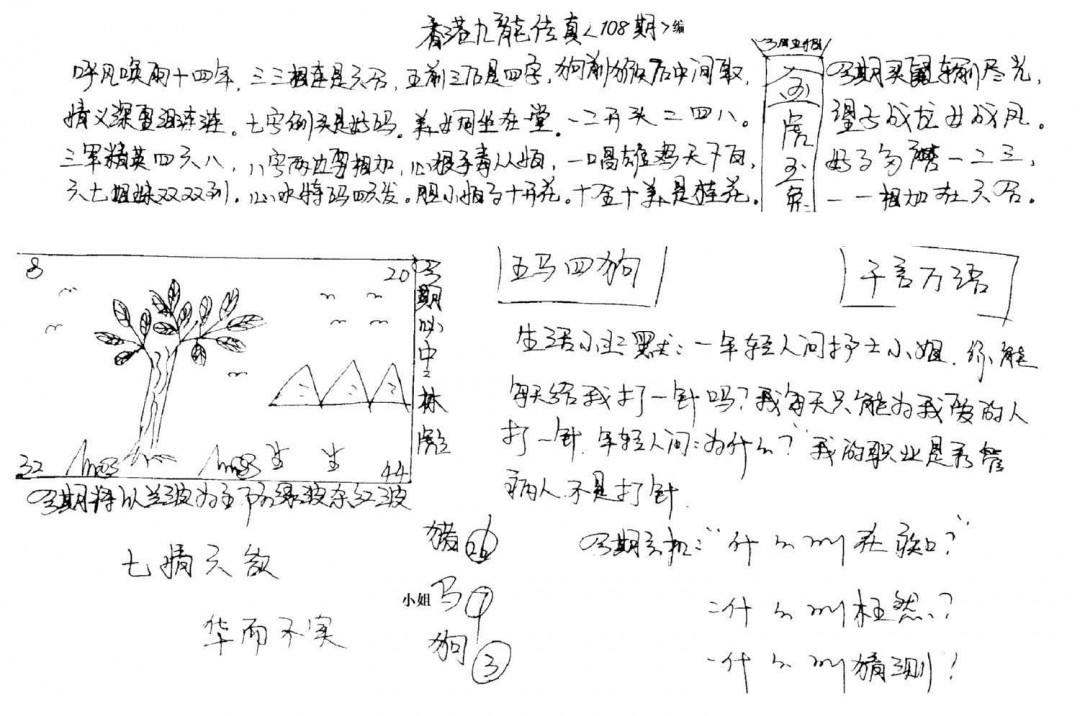 香港九龙传真<108期>编
呼风唤雨十四年，三三相连是六合，五前三后是四字，狗前猴后中间取，
情义深重泪涟涟。七字倒头是好码。美女同坐在堂。一二开头二四八。
三军精英四六八，八字两边要相加，心狠手毒人人恨，一唱雄鸡天下白，
六七姐妹双双到。心水特码四六发。胆小恨子十开花。十全十美是桂花。
虎
兔
今期买鼠输尽光，
望子成龙女成凤。
好子勾一二三，
一一相加在六合。
8
20
32
44
今期必中林彪
今期将以兰波为主下为绿波余红波
五马四狗
千言万语
生活小幽默：一年轻人问护士小姐，你能
每天给我打一针吗？我每天只能为我爱的人
打一针，年轻人问：为什么？我的职业是看管
病人不是打针
七情六欲
华而不实
猪
小姐 马 7
狗 3
今期玄机："什么叫在?"
二什么叫枉然？
一什么叫猜测！